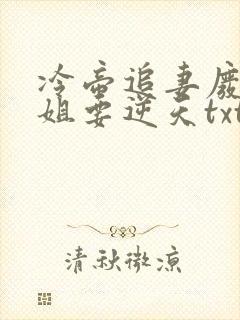 冷帝追妻废
姐要逆天txt
清秋微凉